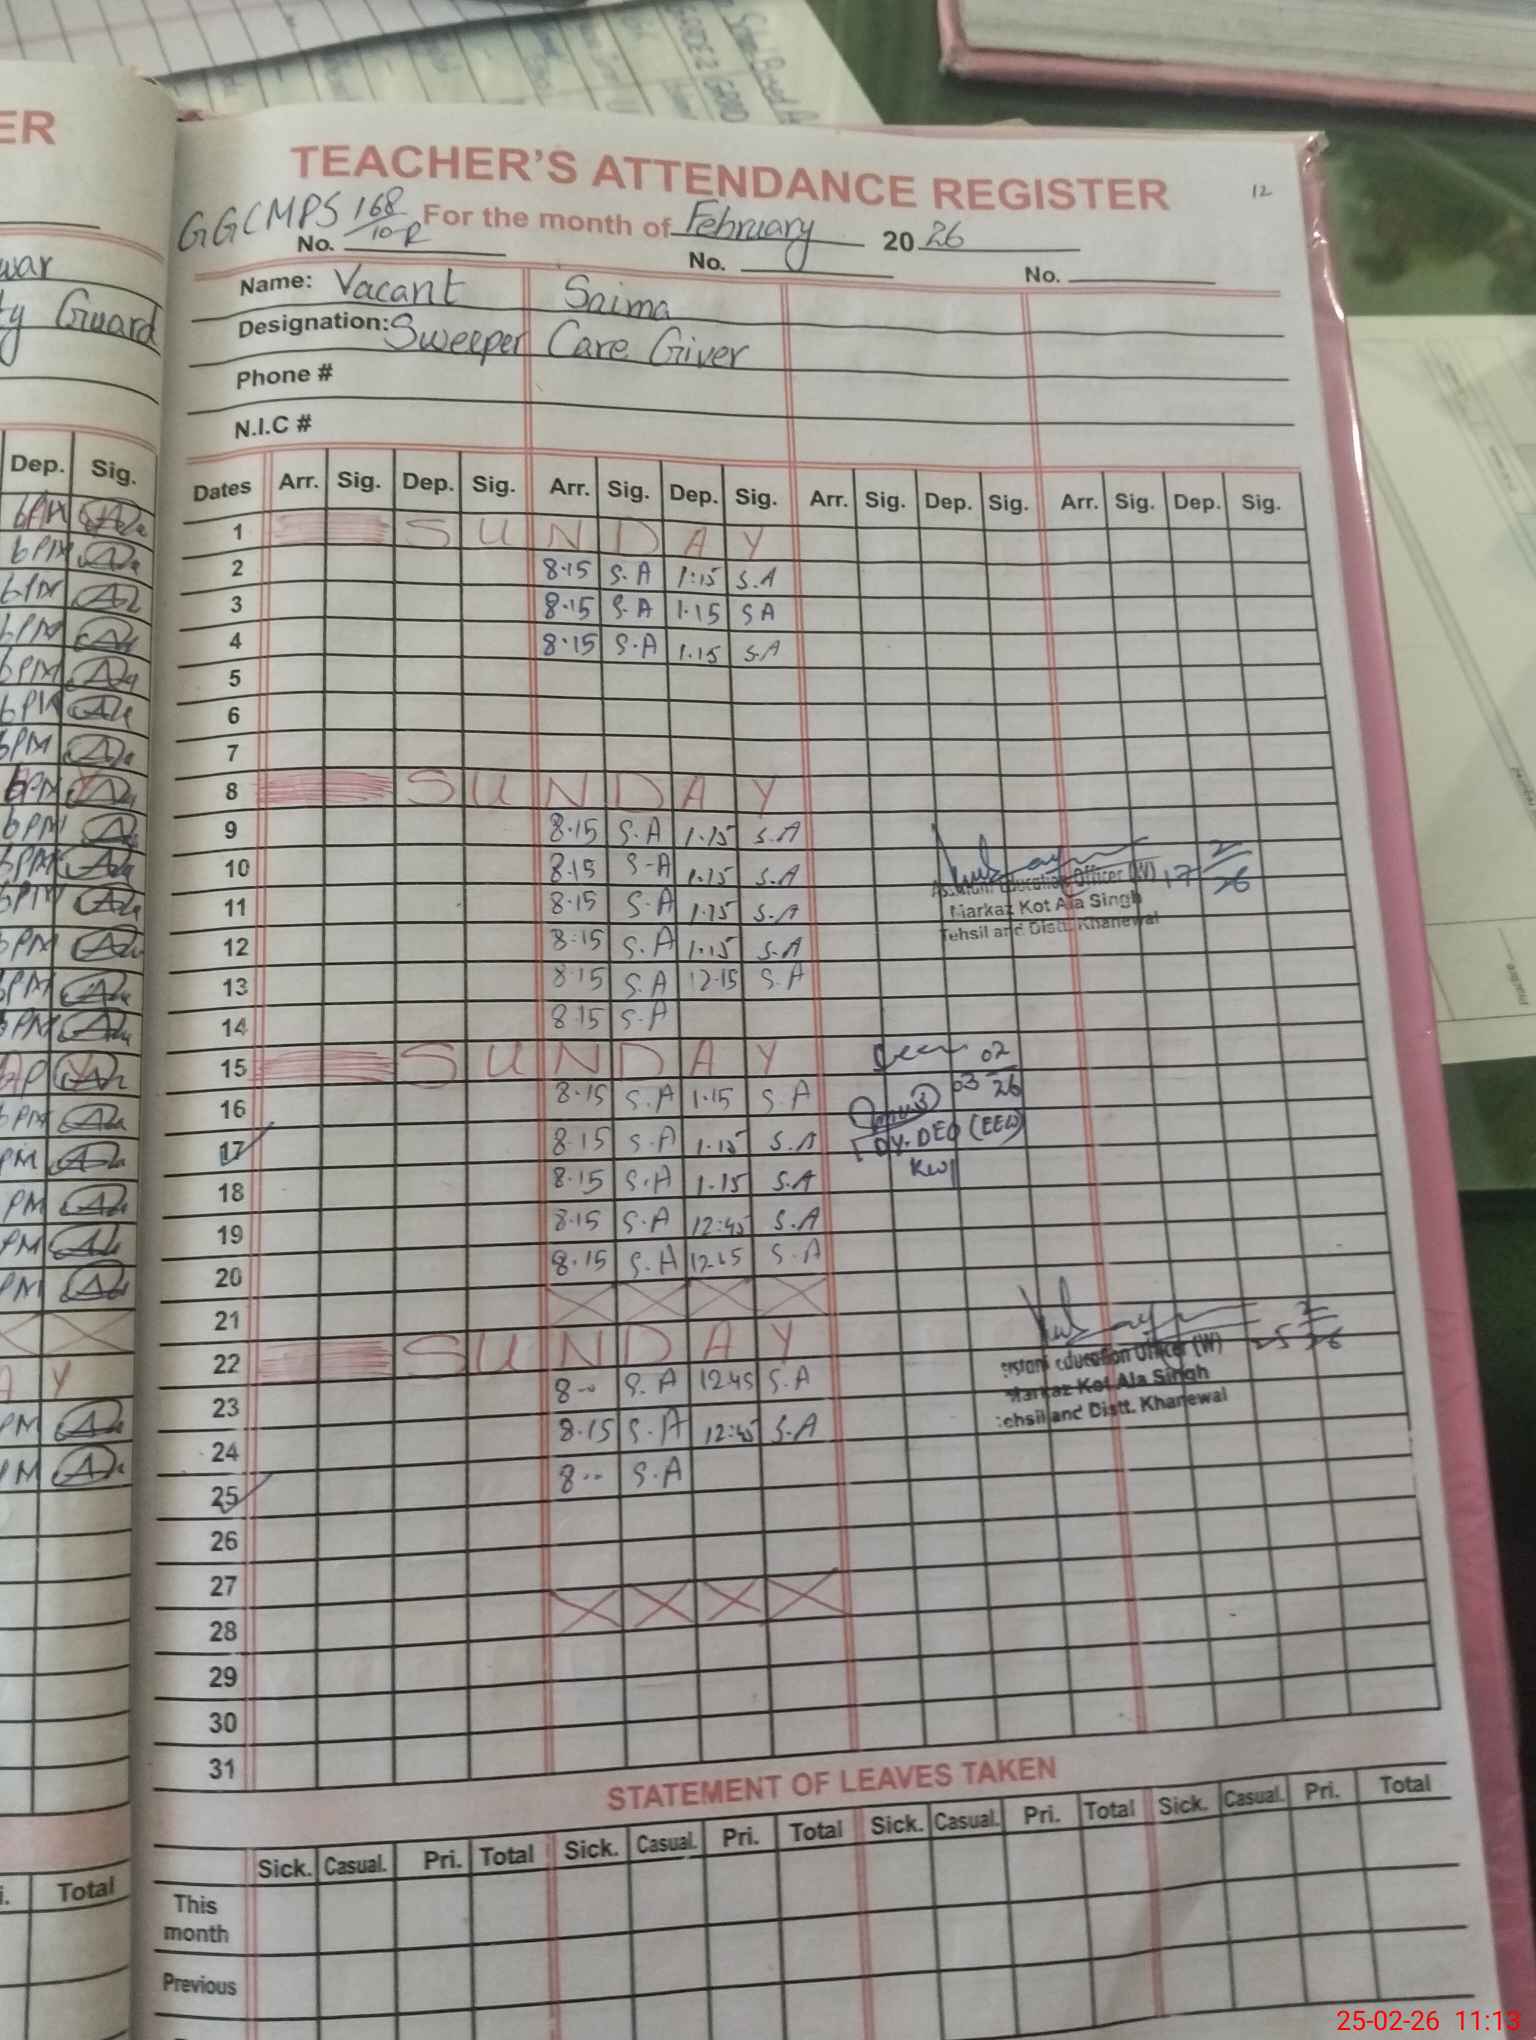 ER
TEACHER'S ATTENDANCE REGISTER
12
GGCMPS 168/10-R For the month of February 2026
No. No. No.
Name: Vacant Saima
Designation: Sweeper Care Giver
Phone #
N.I.C #
war
ty Guard
Dep. Sig.
Dates Arr. Sig. Dep. Sig. Arr. Sig. Dep. Sig. Arr. Sig. Dep. Sig. Arr. Sig. Dep. Sig.
1 SUNDAY
2 8·15 S.A 1:15 S.A
3 8·15 S.A 1.15 SA
4 8·15 S.A 1.15 S.A
5
6
7
8 SUNDAY
9 8·15 S.A 1.15 S.A
10 8.15 S-A 1.15 S.A
11 8·15 S.A 1.15 S.A
12 8:15 S.A 1.15 S.A
13 8·15 S.A 12.15 S.A
14 8.15 S.A
15 SUNDAY
16 8.15 S.A 1.15 S.A
17 8.15 S.A 1.15 S.A
18 8.15 S.A 1.15 S.A
19 8.15 S.A 12:45 S.A
20 8.15 S.A S.A
21
22 SUNDAY
23 8-- S.A 12.45 S.A
24 8.15 S.A 12:45 S.A
25 8-- S.A
26
27
28
29
30
31
Assistant Education Officer (W) 17 2/26
Markaz Kot Ala Singh
Tehsil and Distt. Khanewal
Seen 02
03 26
Dy. DEO (EEW)
Kwl
Assistant Education Officer (W) 25 2/26
Markaz Kot Ala Singh
Tehsil and Distt. Khanewal
STATEMENT OF LEAVES TAKEN
Sick. Casual. Pri. Total Sick. Casual. Pri. Total Sick. Casual. Pri. Total Sick. Casual. Pri. Total
This month
Previous
i. Total
25-02-26 11:13